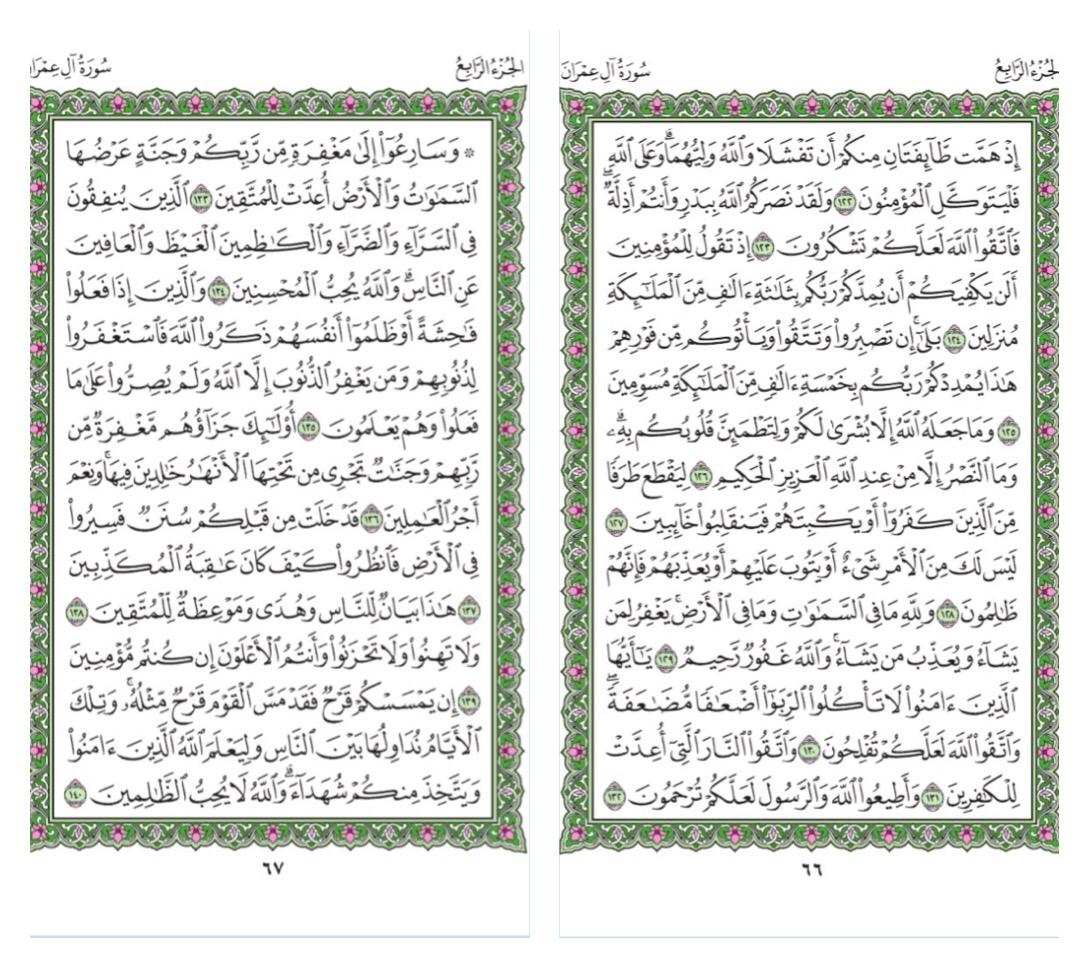 لجُزْءُ الرَّابِعُ سُورَةُ آلِ عِمْرَانَ
إِذْ هَمَّت طَّآئِفَتَانِ مِنكُمْ أَن تَفْشَلَا وَٱللَّهُ وَلِيُّهُمَاۗ وَعَلَى ٱللَّهِ
فَلْيَتَوَكَّلِ ٱلْمُؤْمِنُونَ ١٢٢ وَلَقَدْ نَصَرَكُمُ ٱللَّهُ بِبَدْرٍ وَأَنتُمْ أَذِلَّةٌۖ
فَٱتَّقُوا۟ ٱللَّهَ لَعَلَّكُمْ تَشْكُرُونَ ١٢٣ إِذْ تَقُولُ لِلْمُؤْمِنِينَ
أَلَن يَكْفِيَكُمْ أَن يُمِدَّكُمْ رَبُّكُم بِثَلَٰثَةِ ءَالَٰفٍ مِّنَ ٱلْمَلَٰٓئِكَةِ
مُنزَلِينَ ١٢٤ بَلَىٰٓۚ إِن تَصْبِرُوا۟ وَتَتَّقُوا۟ وَيَأْتُوكُم مِّن فَوْرِهِمْ
هَٰذَا يُمْدِدْكُمْ رَبُّكُم بِخَمْسَةِ ءَالَٰفٍ مِّنَ ٱلْمَلَٰٓئِكَةِ مُسَوِّمِينَ
١٢٥ وَمَا جَعَلَهُ ٱللَّهُ إِلَّا بُشْرَىٰ لَكُمْ وَلِتَطْمَئِنَّ قُلُوبُكُم بِهِۦۗ
وَمَا ٱلنَّصْرُ إِلَّا مِنْ عِندِ ٱللَّهِ ٱلْعَزِيزِ ٱلْحَكِيمِ ١٢٦ لِيَقْطَعَ طَرَفًا
مِّنَ ٱلَّذِينَ كَفَرُوٓا۟ أَوْ يَكْبِتَهُمْ فَيَنقَلِبُوا۟ خَآئِبِينَ ١٢٧
لَيْسَ لَكَ مِنَ ٱلْأَمْرِ شَىْءٌ أَوْ يَتُوبَ عَلَيْهِمْ أَوْ يُعَذِّبَهُمْ فَإِنَّهُمْ
ظَٰلِمُونَ ١٢٨ وَلِلَّهِ مَا فِى ٱلسَّمَٰوَٰتِ وَمَا فِى ٱلْأَرْضِۚ يَغْفِرُ لِمَن
يَشَآءُ وَيُعَذِّبُ مَن يَشَآءُۚ وَٱللَّهُ غَفُورٌ رَّحِيمٌ ١٢٩ يَٰٓأَيُّهَا
ٱلَّذِينَ ءَامَنُوا۟ لَا تَأْكُلُوا۟ ٱلرِّبَوٰٓا۟ أَضْعَٰفًا مُّضَٰعَفَةًۖ
وَٱتَّقُوا۟ ٱللَّهَ لَعَلَّكُمْ تُفْلِحُونَ ١٣٠ وَٱتَّقُوا۟ ٱلنَّارَ ٱلَّتِىٓ أُعِدَّتْ
لِلْكَٰفِرِينَ ١٣١ وَأَطِيعُوا۟ ٱللَّهَ وَٱلرَّسُولَ لَعَلَّكُمْ تُرْحَمُونَ ١٣٢
٦٦
الجُزْءُ الرَّابِعُ سُورَةُ آلِ عِمْرَا
۞ وَسَارِعُوٓا۟ إِلَىٰ مَغْفِرَةٍ مِّن رَّبِّكُمْ وَجَنَّةٍ عَرْضُهَا
ٱلسَّمَٰوَٰتُ وَٱلْأَرْضُ أُعِدَّتْ لِلْمُتَّقِينَ ١٣٣ ٱلَّذِينَ يُنفِقُونَ
فِى ٱلسَّرَّآءِ وَٱلضَّرَّآءِ وَٱلْكَٰظِمِينَ ٱلْغَيْظَ وَٱلْعَافِينَ
عَنِ ٱلنَّاسِۗ وَٱللَّهُ يُحِبُّ ٱلْمُحْسِنِينَ ١٣٤ وَٱلَّذِينَ إِذَا فَعَلُوا۟
فَٰحِشَةً أَوْ ظَلَمُوٓا۟ أَنفُسَهُمْ ذَكَرُوا۟ ٱللَّهَ فَٱسْتَغْفَرُوا۟
لِذُنُوبِهِمْ وَمَن يَغْفِرُ ٱلذُّنُوبَ إِلَّا ٱللَّهُ وَلَمْ يُصِرُّوا۟ عَلَىٰ مَا
فَعَلُوا۟ وَهُمْ يَعْلَمُونَ ١٣٥ أُو۟لَٰٓئِكَ جَزَآؤُهُم مَّغْفِرَةٌ مِّن
رَّبِّهِمْ وَجَنَّٰتٌ تَجْرِى مِن تَحْتِهَا ٱلْأَنْهَٰرُ خَٰلِدِينَ فِيهَاۚ وَنِعْمَ
أَجْرُ ٱلْعَٰمِلِينَ ١٣٦ قَدْ خَلَتْ مِن قَبْلِكُمْ سُنَنٌ فَسِيرُوا۟
فِى ٱلْأَرْضِ فَٱنظُرُوا۟ كَيْفَ كَانَ عَٰقِبَةُ ٱلْمُكَذِّبِينَ
١٣٧ هَٰذَا بَيَانٌ لِّلنَّاسِ وَهُدًى وَمَوْعِظَةٌ لِّلْمُتَّقِينَ ١٣٨
وَلَا تَهِنُوا۟ وَلَا تَحْزَنُوا۟ وَأَنتُمُ ٱلْأَعْلَوْنَ إِن كُنتُم مُّؤْمِنِينَ
١٣٩ إِن يَمْسَسْكُمْ قَرْحٌ فَقَدْ مَسَّ ٱلْقَوْمَ قَرْحٌ مِّثْلُهُۥۚ وَتِلْكَ
ٱلْأَيَّامُ نُدَاوِلُهَا بَيْنَ ٱلنَّاسِ وَلِيَعْلَمَ ٱللَّهُ ٱلَّذِينَ ءَامَنُوا۟
وَيَتَّخِذَ مِنكُمْ شُهَدَآءَۗ وَٱللَّهُ لَا يُحِبُّ ٱلظَّٰلِمِينَ ١٤٠
٦٧